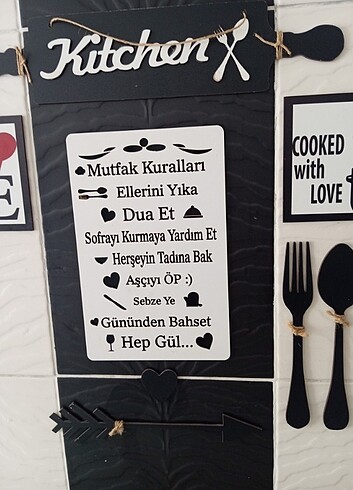 Kitchen
Mutfak Kuralları
Ellerini Yıka
Dua Et
Sofrayı Kurmaya Yardım Et
Herşeyin Tadına Bak
Aşçıyı ÖP :)
Sebze Ye
Gününden Bahset
Hep Gül...
COOKED
with
LOVE
E